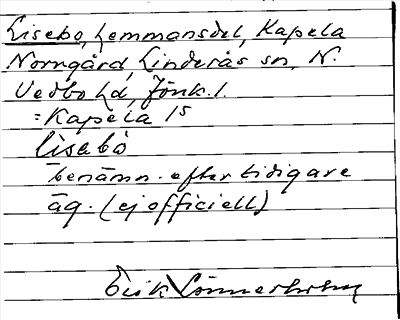 Lisebo, Lemmansdel, Kapela
Norrgård, Linderås sn, N.
Vedbo hd, Jönk. l.
= Kapela 1⁵
Lisebo
benämn. efter tidigare
äg. (ej officiell)
Erik Lönnerholm